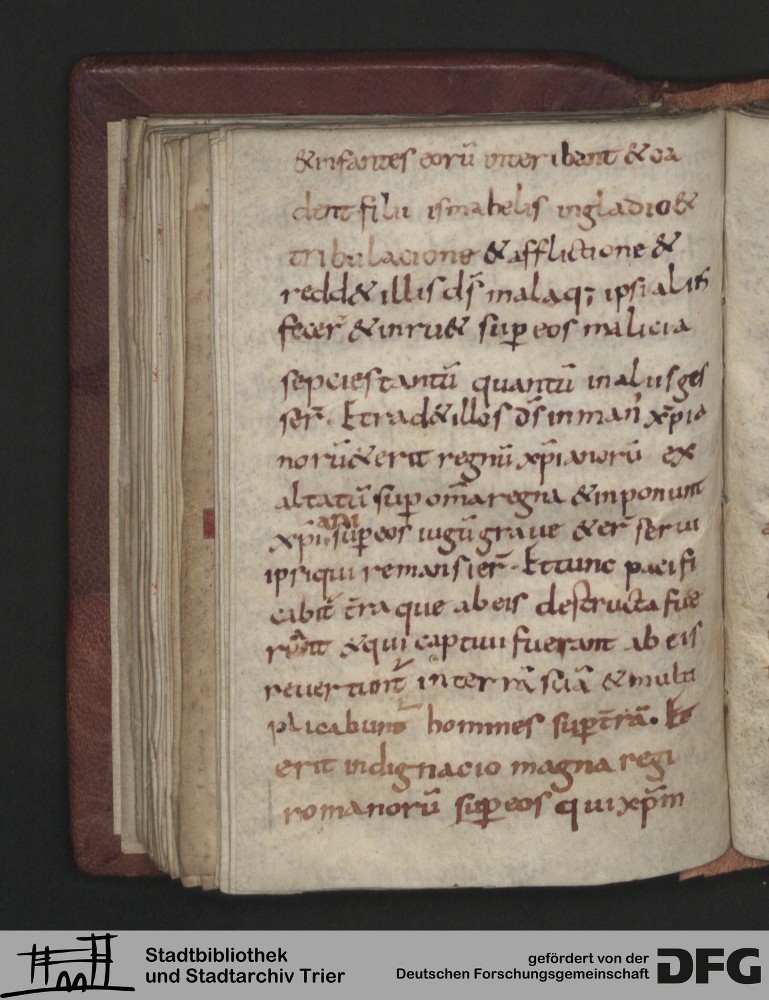 &infantes eorū interibunt & ca
dent filii ismahelis in gladio &
tribulacione & afflictione &
redd& illis d̄s mala q; ipsi aliis
fecer̄ & inru& sup eos malicia
sepcies tantū quantū in aliis ges
ser̄. Et trad& illos d̄s in man' xp̄ia
norū & erit regnū xp̄ianorū ex
altatū sup om̄a regna & inponunt
xp̄iani sup eos iugū graue & er̄ serui
ipsi qui remanser̄. Et tunc pacifi
cabit̄ t̄ra que ab eis destructa fue
runt & qui captiui fuerant ab eis
reuertunt in terrā suā & multi
plicabunt homines sup t̄rā. Et
erit indignacio magna regi
romanorū sup eos qui xp̄m
Stadtbibliothek
und Stadtarchiv Trier
gefördert von der
Deutschen Forschungsgemeinschaft
DFG